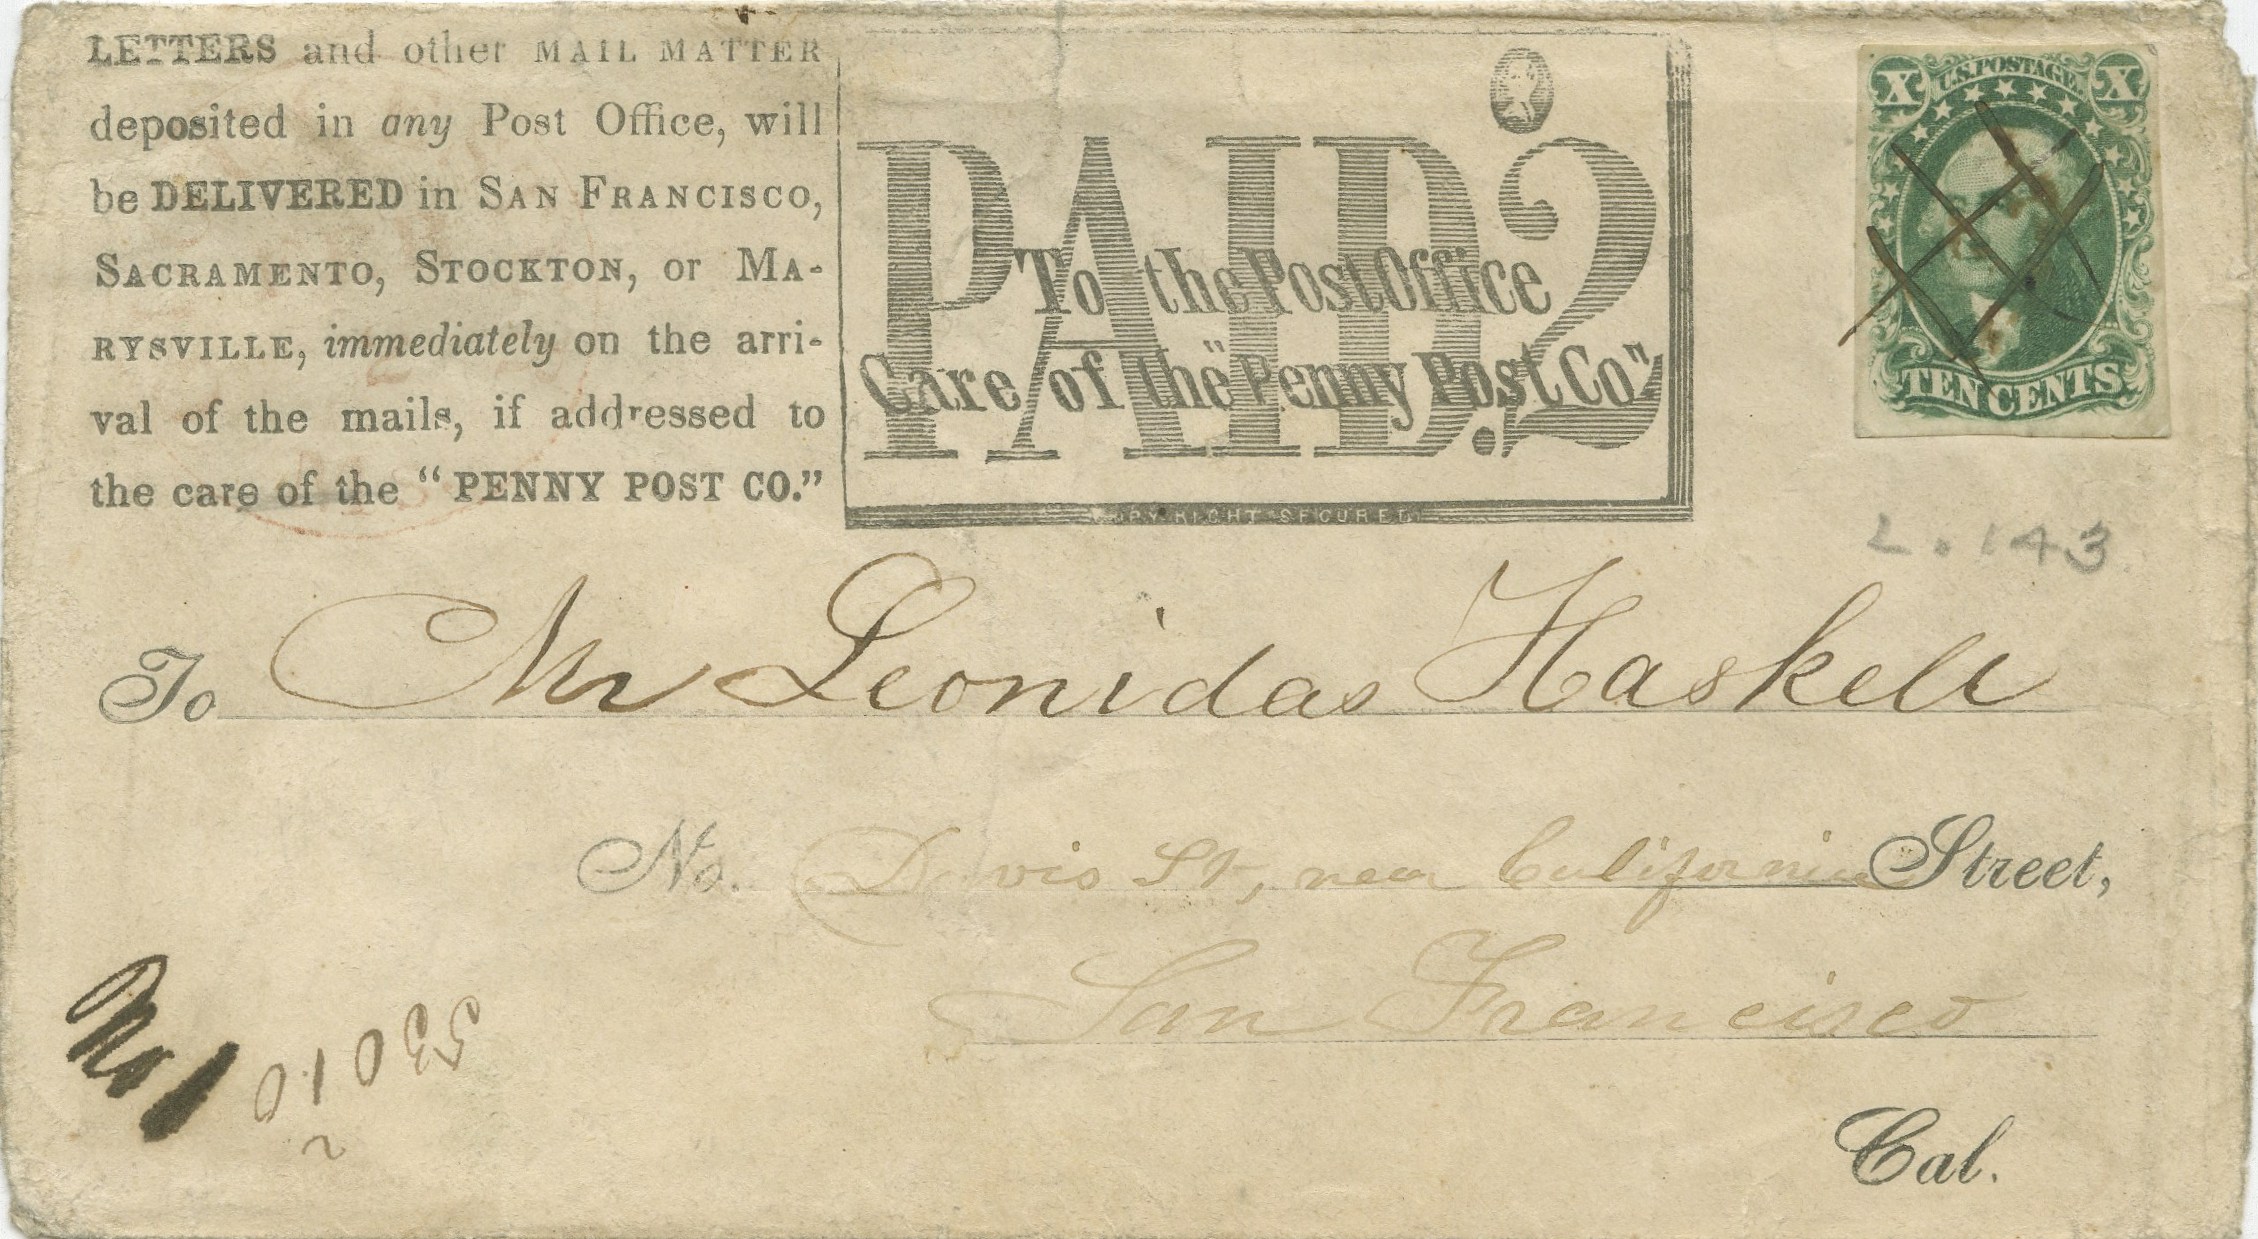 LETTERS and other MAIL MATTER
deposited in any Post Office, will
be DELIVERED in SAN FRANCISCO,
SACRAMENTO, STOCKTON, or MA-
RYSVILLE, immediately on the arri-
val of the mails, if addressed to
the care of the "PENNY POST CO."
PAID. 2
To the Post Office
Care of the "Penny Post Co."
COPY RIGHT SECURED
X U.S. POSTAGE X
TEN CENTS
L. 143
To Mr Leonidas Haskell
No. Davis St, near California Street,
San Francisco
Cal.
No 1